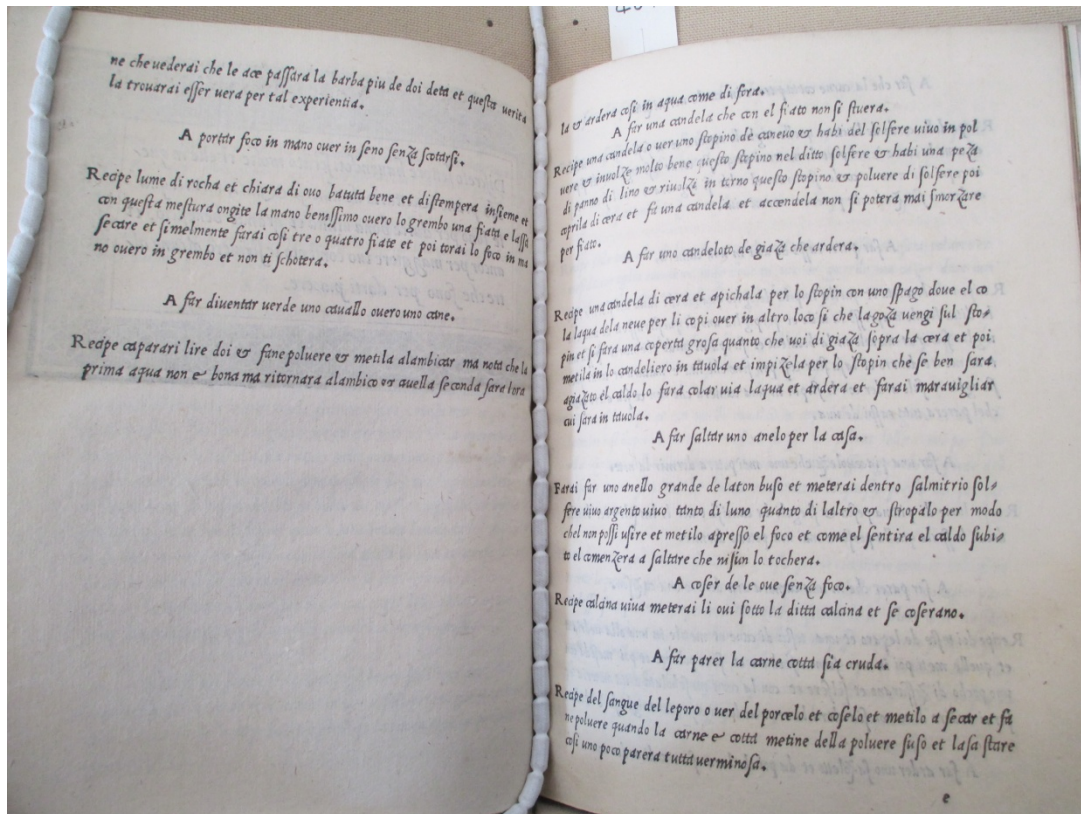 ne che uederai che le ace passara la barba piu de doi deta et questa uerita
la trouarai esser uera per tal experientia.
A portar foco in mano ouer in seno senza scotarsi.
Recipe lume di rocha et chiara di ouo batuta bene et distempera insieme et
con questa mestura ongite la mano benissimo ouero lo grembo una fiata e lassa
secare et similmente farai cosi tre o quatro fiate et poi torai lo foco in ma
no ouero in grembo et non ti schotera.
A far diuentar uerde uno cauallo ouero uno cane.
Recipe caparari lire doi & fane poluere & metila alambicar ma nota che la
prima aqua non e bona ma ritornara alambico & quella seconda sare lora
la & ardera cosi in aqua come di fora.
A far una candela che con el fiato non si stuera.
Recipe una candela o uer uno stopino de caneuo & habi del solfere uiuo in pol
uere & inuolze molto bene questo stopino nel ditto solfere & habi una peza
di panno di lino & riuolze in torno questo stopino & poluere di solfere poi
coprila di cera et fit una candela et accendela non si potera mai smorzare
per fiato.
A far uno candeloto de giaza che ardera.
Recipe una candela di cera et apichala per lo stopin con uno spago doue el co
la laqua dela neue per li copi ouer in altro loco si che lagoza uengi sul sto=
pin et si fara una coperta grosa quanto che uoi di giaza sopra la cera et poi
metila in lo candeliero in tauola et impizela per lo stopin che se ben sara
agiazato el caldo lo fara colar uia laqua et ardera et farai marauigliar
cui sara in tauola.
A far saltar uno anelo per la casa.
Farai far uno anello grande de laton buso et meterai dentro salmitrio sol=
fere uiuo argento uiuo tanto di luno quanto di laltro & stropalo per modo
chel non possi usire et metilo apresso el foco et come el sentira el caldo subi=
to el comenzera a saltare che nisun lo tochera.
A coser de le oue senza foco.
Recipe calcina uiua meterai li oui sotto la ditta calcina et se coserano.
A far parer la carne cotta sia cruda.
Recipe del sangue del leporo o uer del porcelo et coselo et metilo a secar et fa
ne poluere quando la carne e cotta metine della poluere suso et lasa stare
cosi uno poco parera tutta uerminosa.
e